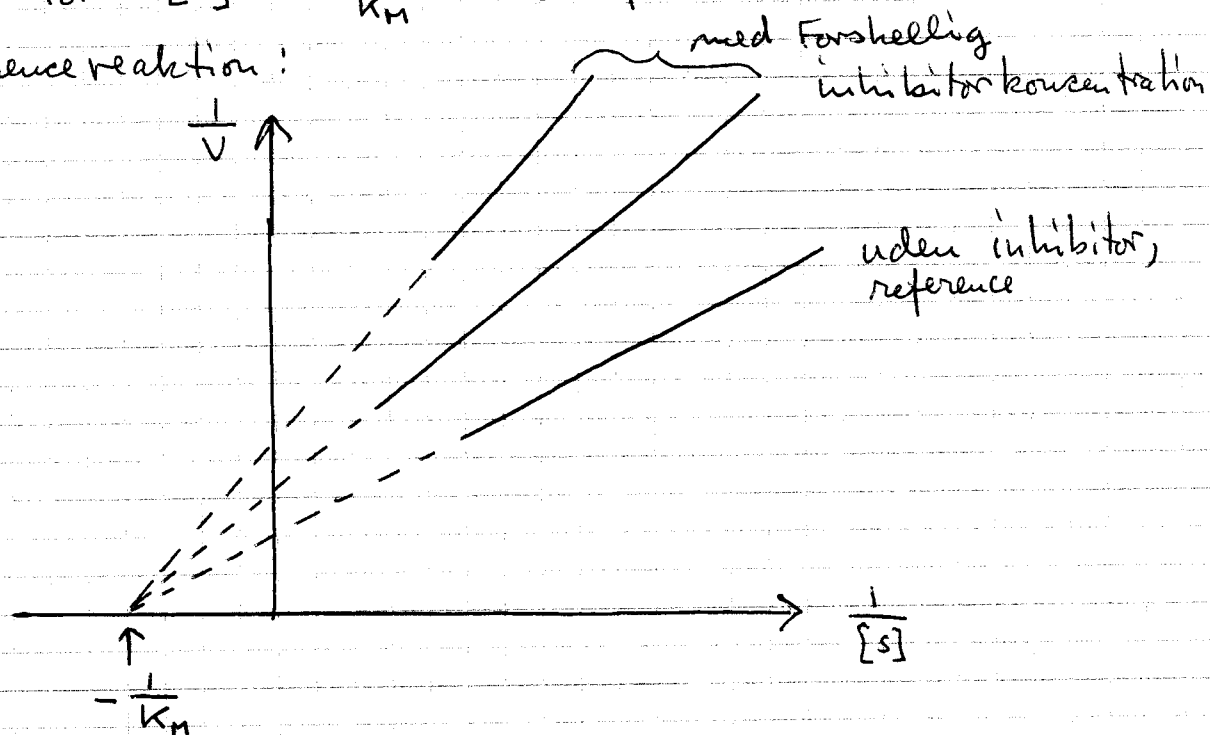 [s] K_M
reaktion :
med Forskellig
inhibitorkoncentration
1/V
uden inhibitor,
reference
1/[s]
- 1/K_M